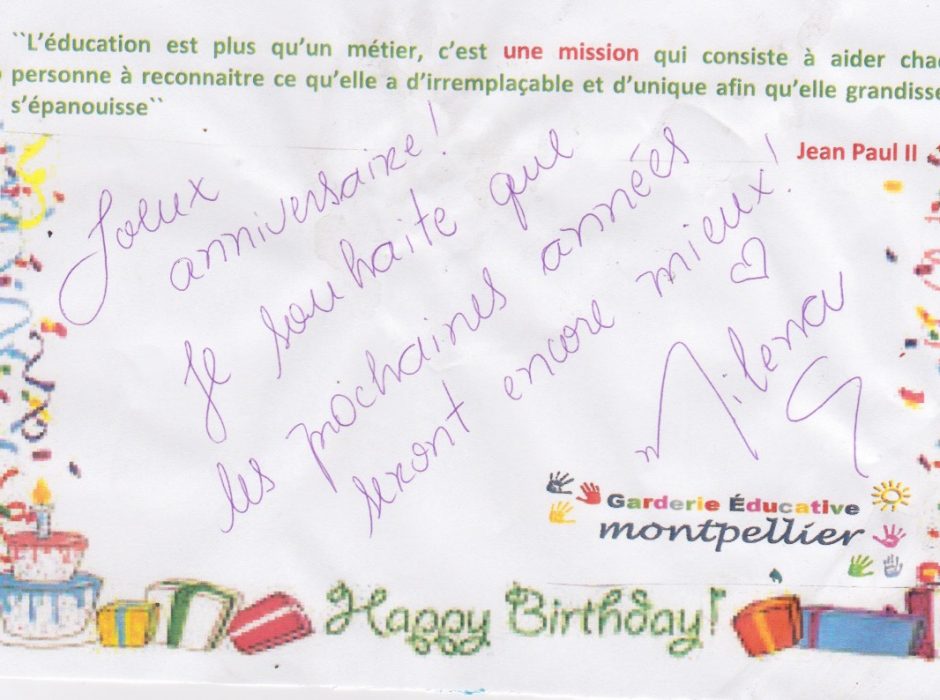 ``L'éducation est plus qu'un métier, c'est une mission qui consiste à aider chac
personne à reconnaitre ce qu'elle a d'irremplaçable et d'unique afin qu'elle grandisse
s'épanouisse``
Jean Paul II
Joeux
anniversaire!
Je souhaite que
les prochaines années
seront encore mieux!
Milena
Garderie Éducative
montpellier
Happy Birthday!